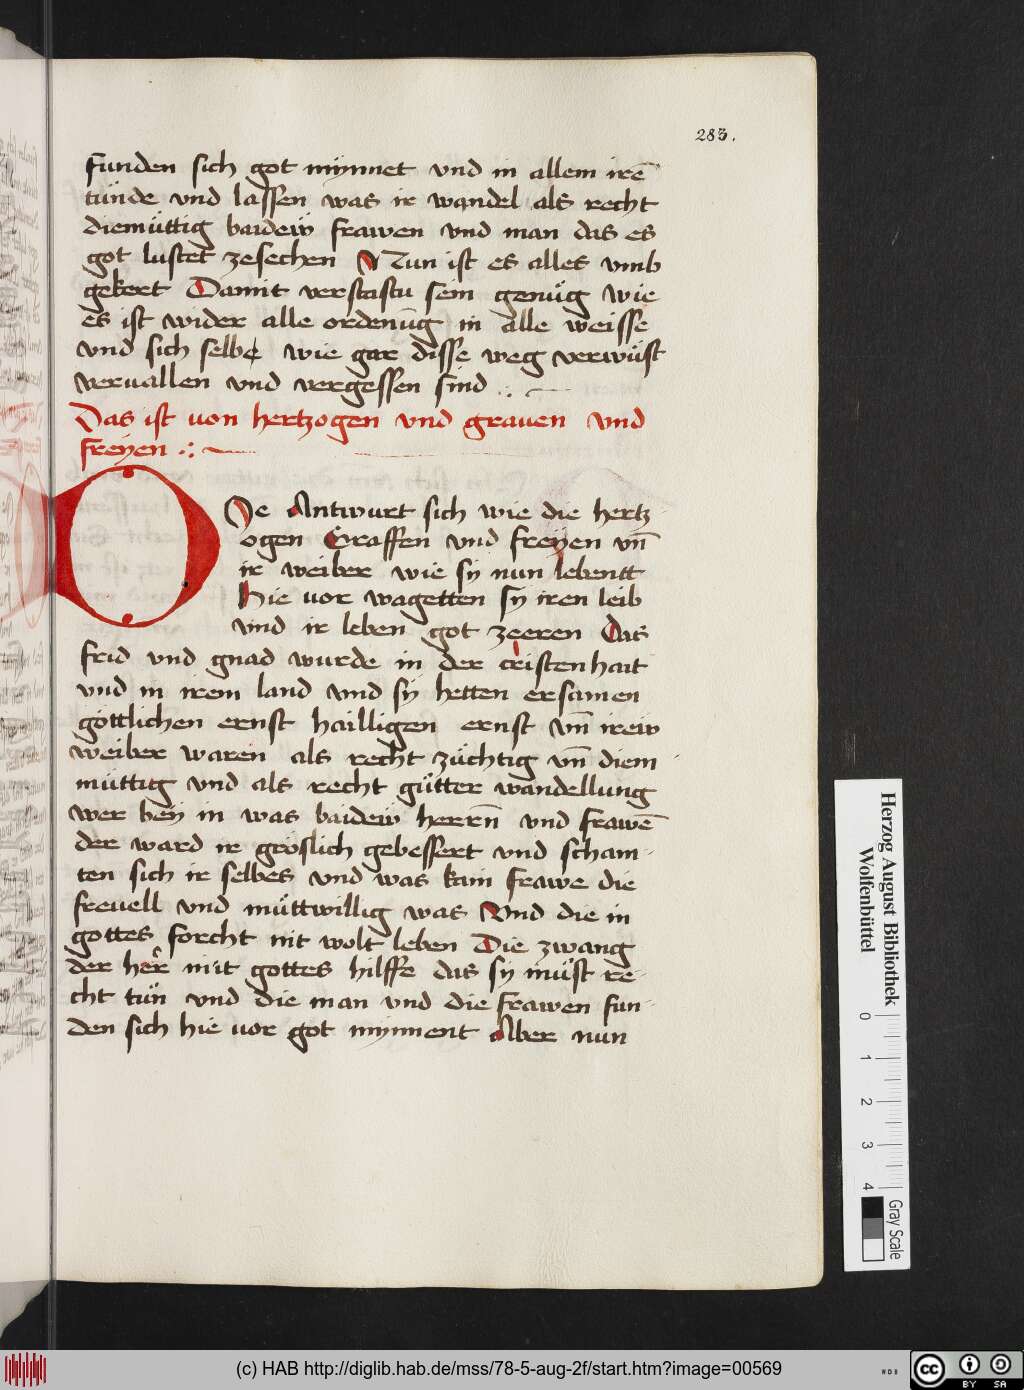 283.
funden sich got mÿnnet vnd in allem irē
tünde vnd lassen was ir wandel als recht
diemüttig baideẅ frawen vnd man das es
got lustet zesechen Nun ist es alles vmb
gekert Damit verstastu sein genuͦg wie
es ist wider alle ordenūg in alle weisse
vnd sich selbe wie gar disse weg verwüst
veruallen vnd vergessen sind
Das ist von hertzogen vnd grauen vnd
freÿen
O
We Antwurt sich wie die hertz
ogen Graffen vnd freÿen vn̄
ir weiber wie sÿ nun lebentt
Hie vor wagetten sÿ iren leib
vnd ir leben got zeeren Das
frid vnd gnad wurde in der cristenhait
vnd in irem land vnd sÿ hetten ersamen
göttlichen ernst hailligen ernst vn̄ ireẅ
weiber waren als recht züchtig vn̄ diem
müttig vnd als recht guͦtter wandellung
wer beÿ in was baideẅ herrn̄ vnd frawē
der ward ir gröslich gebessert vnd scham
ten sich ir selbes vnd was kain frawe die
freuell vnd muͦttwillig was Vnd die in
gottes forcht nit wolt leben Die zwang
der her̄ mit gottes hilffe das sÿ muͦst re
cht tuͦn vnd die man vnd die frawen fun
den sich hie vor got mÿnnent Aber nun
Herzog August Bibliothek
Wolfenbüttel
0 1 2 3 4
Gray Scale
(c) HAB http://diglib.hab.de/mss/78-5-aug-2f/start.htm?image=00569
HAB
cc BY SA